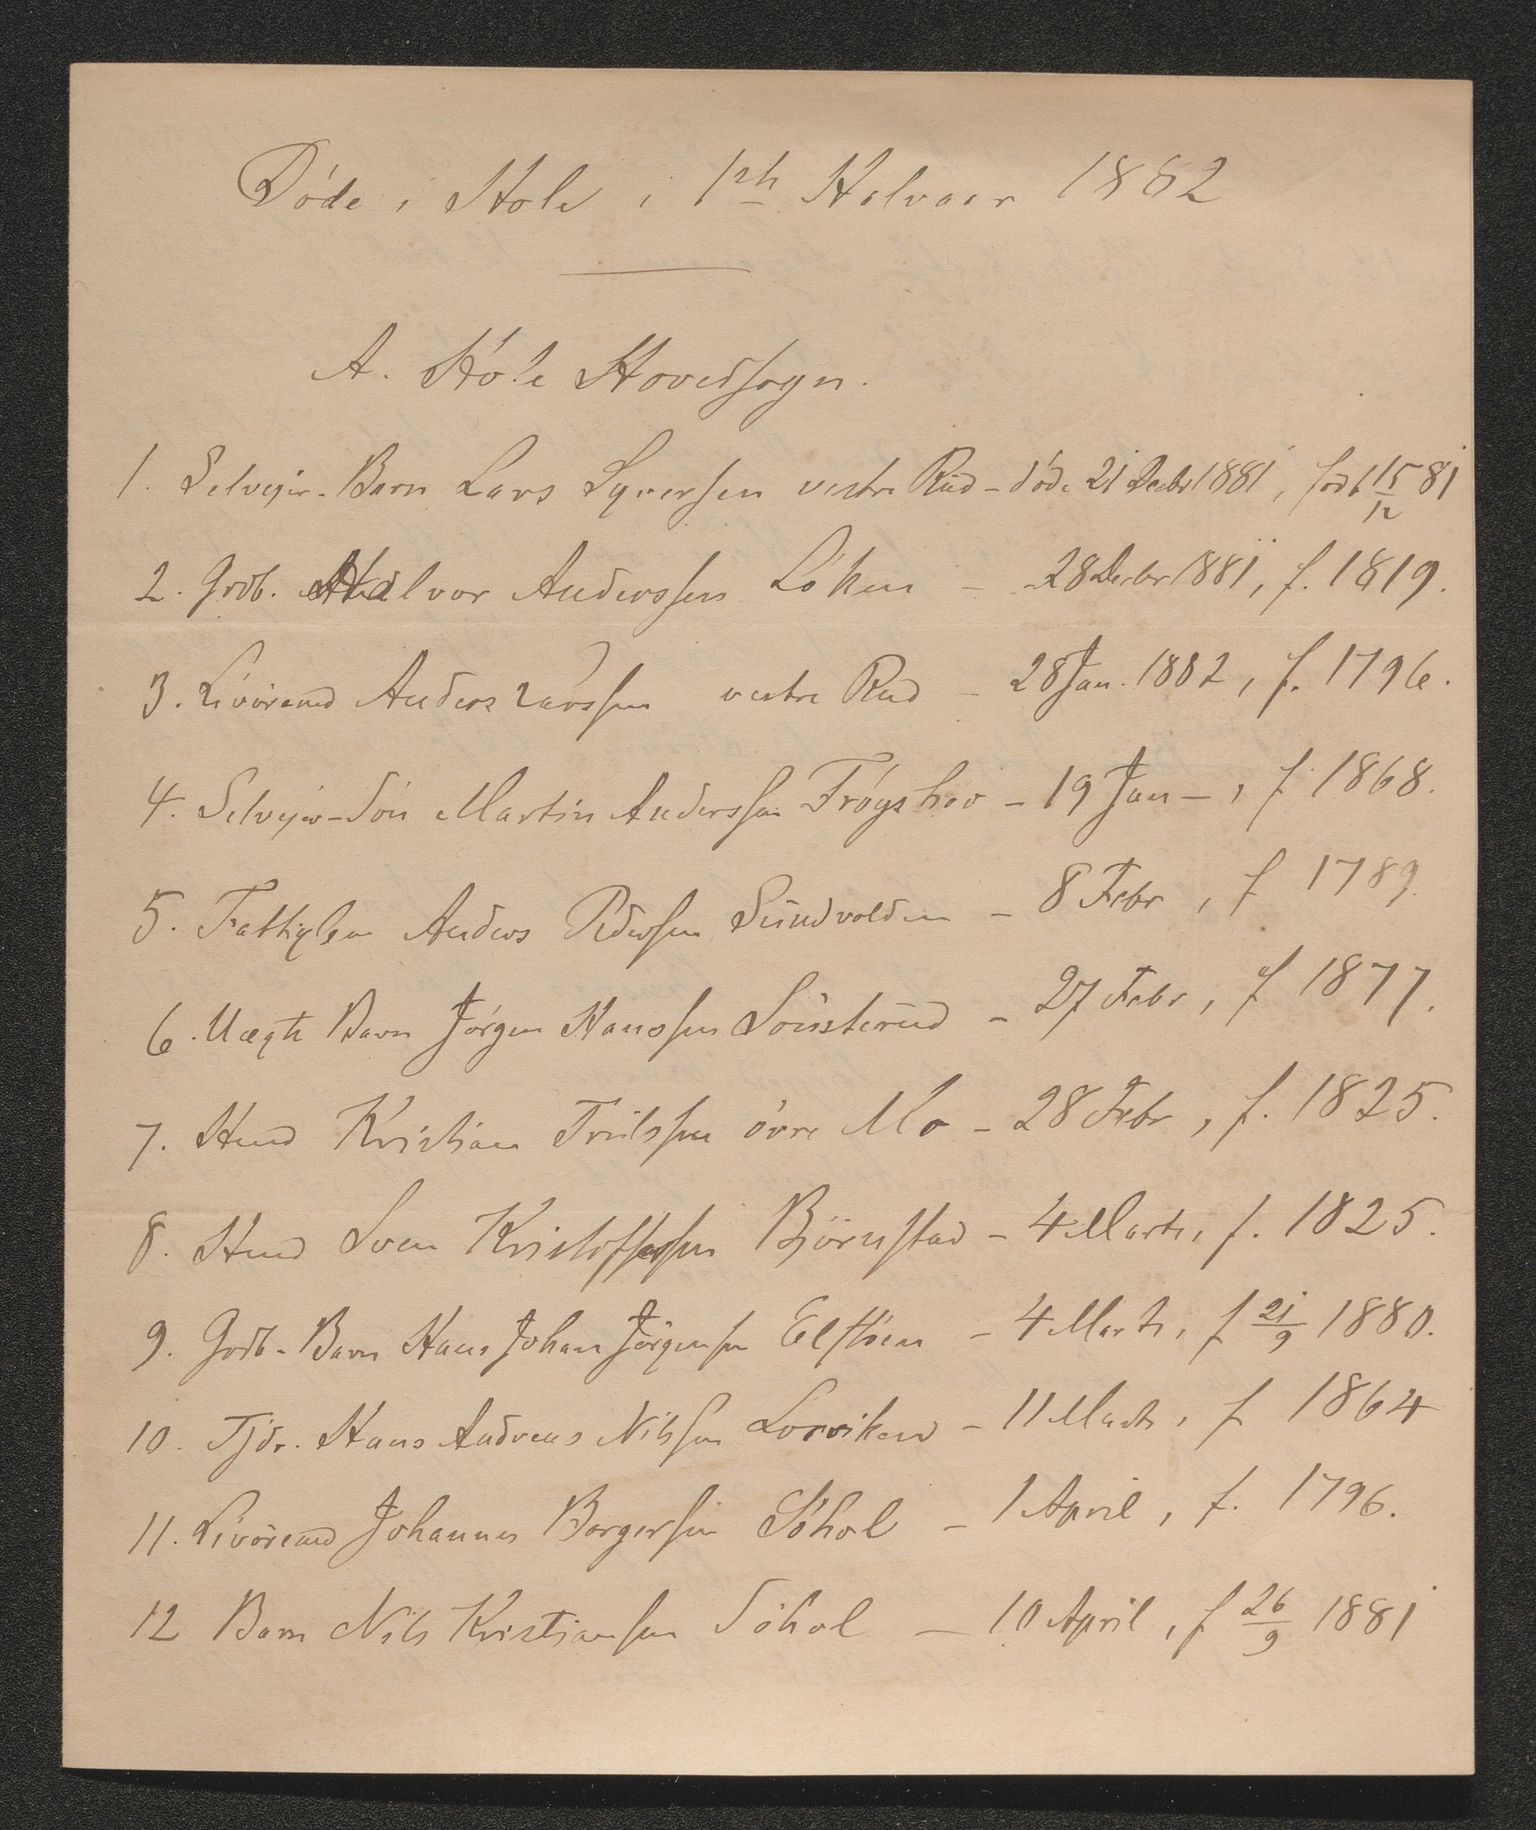 Döde i Hole i 1ste Halvaar 1882
A. Hole Hovedsogn.
1. Selvejer-Barn Lars Syversen vestre Rud - död 21 Decbr 1881, född 15/12 81
2. Grdb. Halvor Anderssen Löken - 28 Decbr 1881, f. 1819.
3. Livöremd Anders Larssen vestre Rud - 28 Jan. 1882, f. 1796.
4. Selvejer-Sön Martin Anderssen Fröyshov - 19 Jan - , f 1868.
5. Fattiglem Anders Pedersen Sundvolden - 8 Febr , f 1789.
6. Uægte Barn Jörgen Hanssen Sönsterud - 27 Febr , f 1877.
7. Hmd Kristian Trulssen övre Mo - 28 Febr , f. 1825.
8. Hmd Sven Kristoffersen Björnstad - 4 Marts, f. 1825.
9. Grdb. - Barn Hans Johan Jörgensen Elstöen - 4 Marts, f 21/9 1880.
10. Tjdr. Hans Andreas Nilssen Lorviken - 11 Marts, f 1864
11. Livöremd Johannes Borgersen Söhol - 1 April , f. 1796.
12 Barn Nils Kristiansen Söhol - 10 April , f 26/9 1881